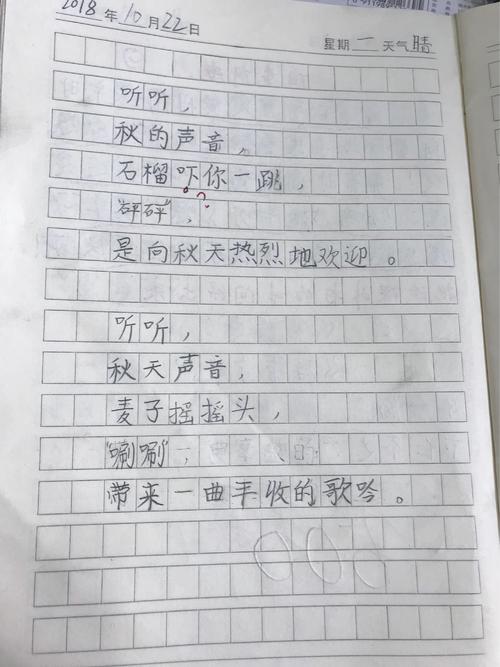 2018年10月22日
星期一 天气晴
听听，
秋的声音，
石榴吓你一跳，
“砰砰”，
是向秋天热烈地欢迎。
听听，
秋天声音，
麦子摇摇头，
“唰唰”，
带来一曲丰收的歌吟。